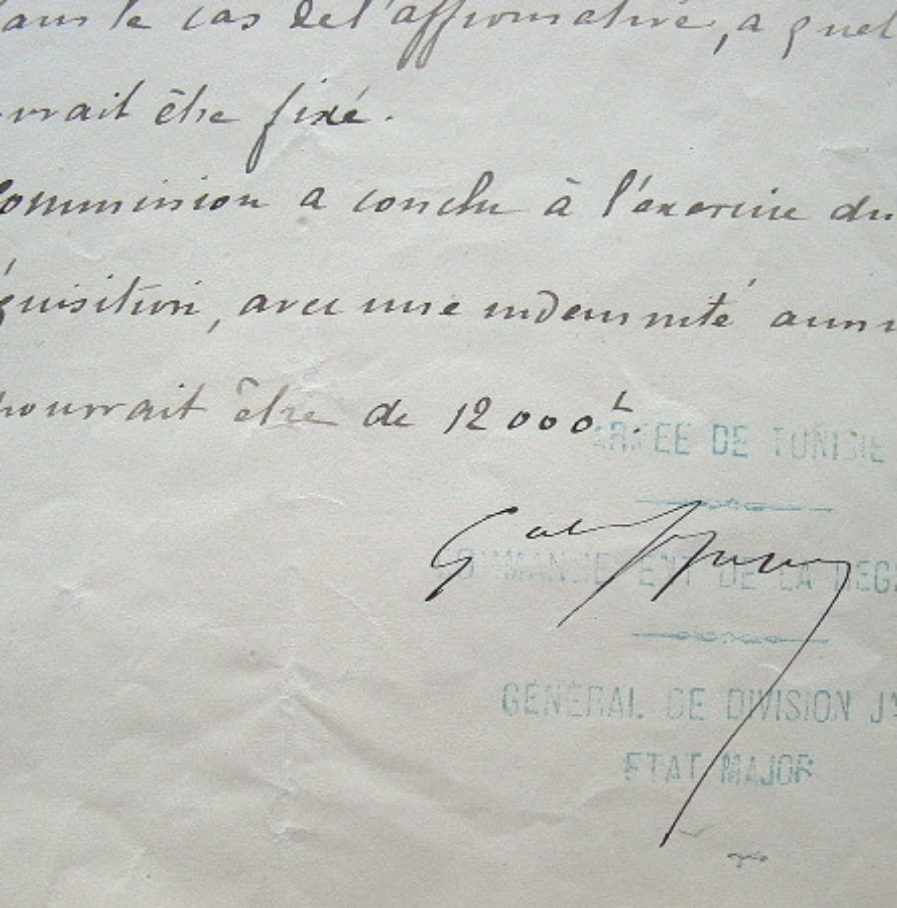 dans le cas de l'affirmative, a quel
urrait être fixé.
Commission a conclu à l'exercice du
quisition, avec une indemnité annu
pourrait être de 12000 L.
ARMÉE DE TUNISIE
COMMANDEMENT DE LA REG
GÉNÉRAL DE DIVISION J
ETAT MAJOR